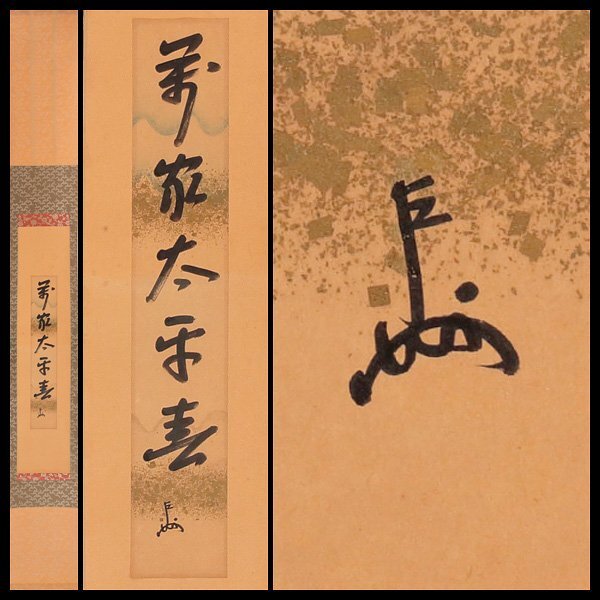 萬家太平春
萬家太平春